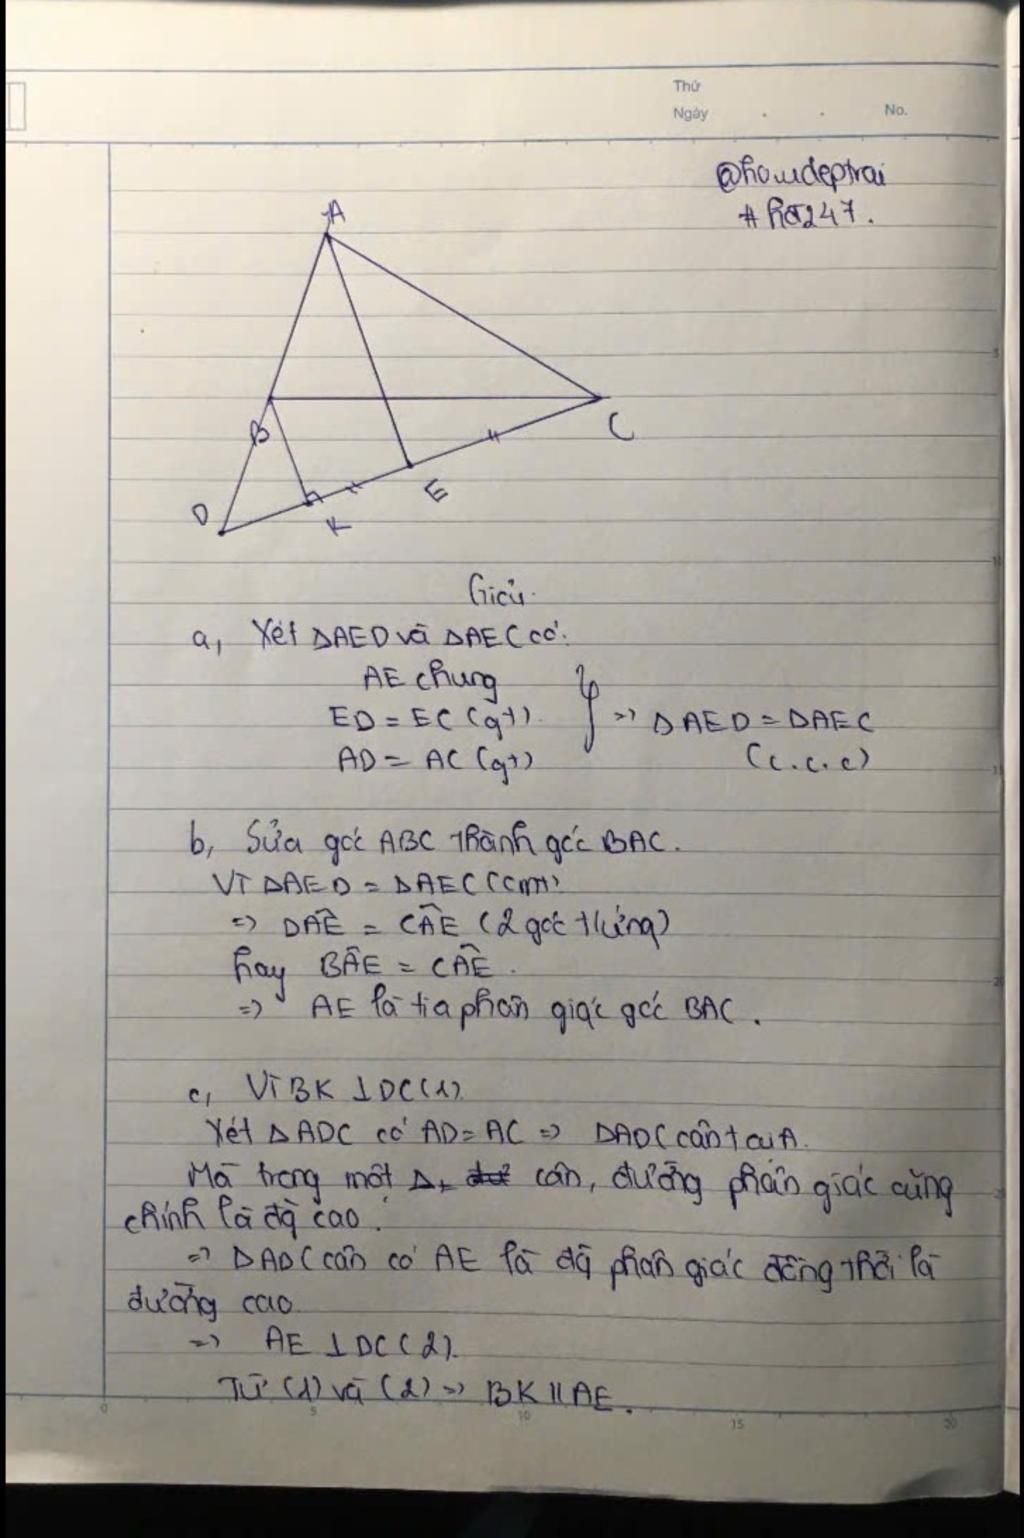 Thứ
Ngày . . No.
@houdeptrai
A
B
C
D
K
E
Giải
a, Xét ΔAED và ΔAEC có:
AE chung
ED = EC (gt)
AD = AC (gt)
} => ΔAED = ΔAEC
(c.c.c)
b, Sửa góc ABC thành góc BAC.
Vì ΔAED = ΔAEC (cmt)
=> DÂE = CÂE (2 góc tứng)
hay BÂE = CÂE.
=> AE là tia phân giác góc BAC.
c, Vì BK ⊥ DC (1)
Xét ΔADC có AD = AC => ΔADC cân tại A.
Mà trong một Δ cân, đường phân giác cũng
chính là đg cao.
=> ΔADC cân có AE là đg phân giác đồng thời là
đường cao
=> AE ⊥ DC (2).
Từ (1) và (2) => BK // AE.
0 5 10 15 20